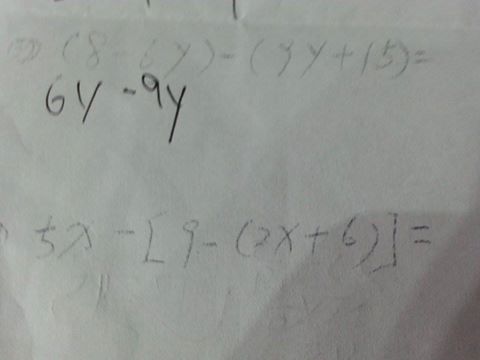 (8 - 6y) - (9y + 15) =
6y - 9y
5x - [9 - (2x + 6)] =